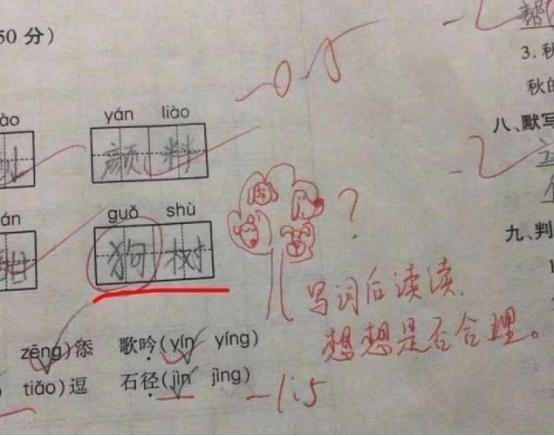 50 分)
yán liào
颜料
guǒ shù
狗树
?
写词后读读,
想想是否合理。
zēng)添 歌吟(yín yíng)
tiǎo)逗 石径(jìn jìng)
-1.5
-0.5
3. 秋
秋的
八、默写
九、判